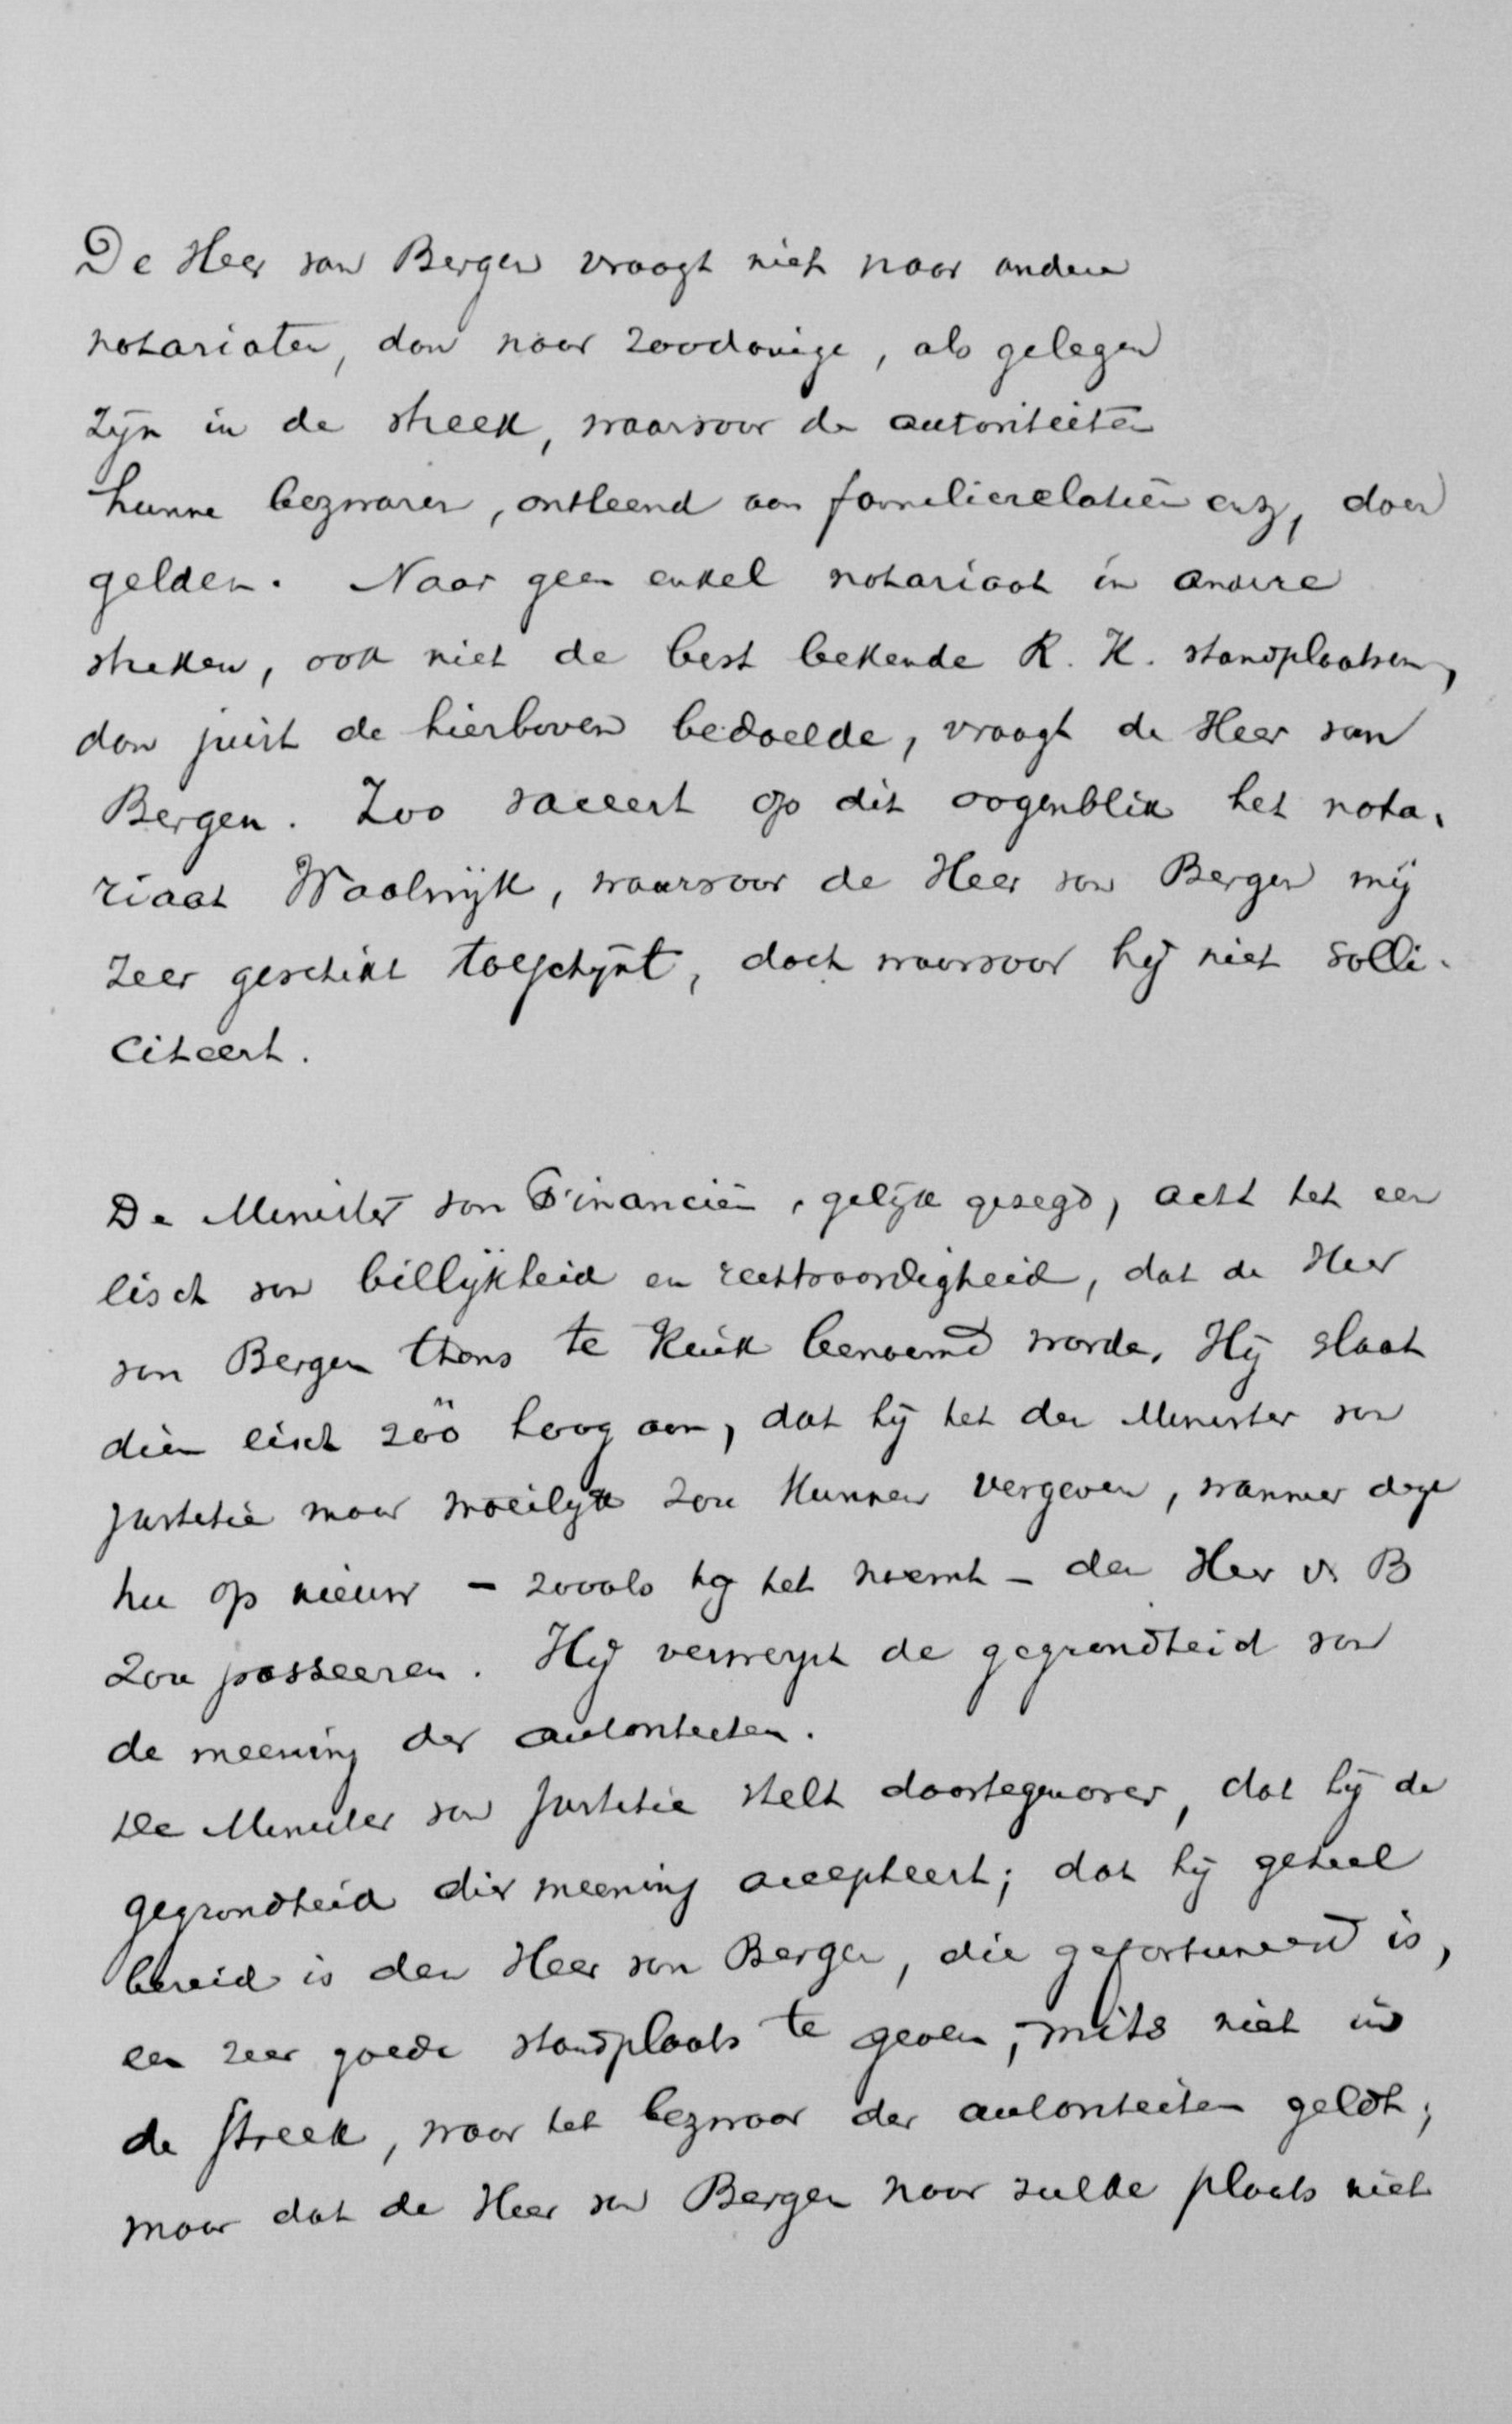 De Heer van Bergen vraagt niet naar andere
notariaten, dan naar zoodanige, als gelegen
zijn in de streek, waarvoor de autoriteiten
hunne bezwaren, ontleend aan familierelatiën enz, doen
gelden. Naar geen enkel notariaat in andere
streken, ook niet de best bekende R. K. standplaatsen,
dan juist de hierboven bedoelde, vraagt de Heer van
Bergen. Zoo vaceert op dit oogenblik het nota-
riaat Waalwijk, waarvoor de Heer van Bergen mij
zeer geschikt toeschijnt, doch waarvoor hij niet solli-
citeert.
De Minister van Financiën, gelijk gezegd, acht het een
eisch van billijkheid en rechtvaardigheid, dat de Heer
van Bergen thans te Kuik benoemd worde. Hij slaat
dien eisch zóó hoog aan, dat hij het den Minister van
Justitie maar moeilijk zou kunnen vergeven, wanneer deze
nu op nieuw – zooals hij het noemt – den Heer v. B
zou passeeren. Hij verwerpt de gegrondheid van
de meening der autoriteiten.
De Minister van Justitie stelt daartegenover, dat hij de
gegrondheid dier meening accepteert; dat hij geheel
bereid is den Heer van Bergen, die gefortuneerd is,
een zeer goede standplaats te geven, mits niet in
de streek, waar het bezwaar der autoriteiten geldt;
maar dat de Heer van Bergen naar zulke plaats niet